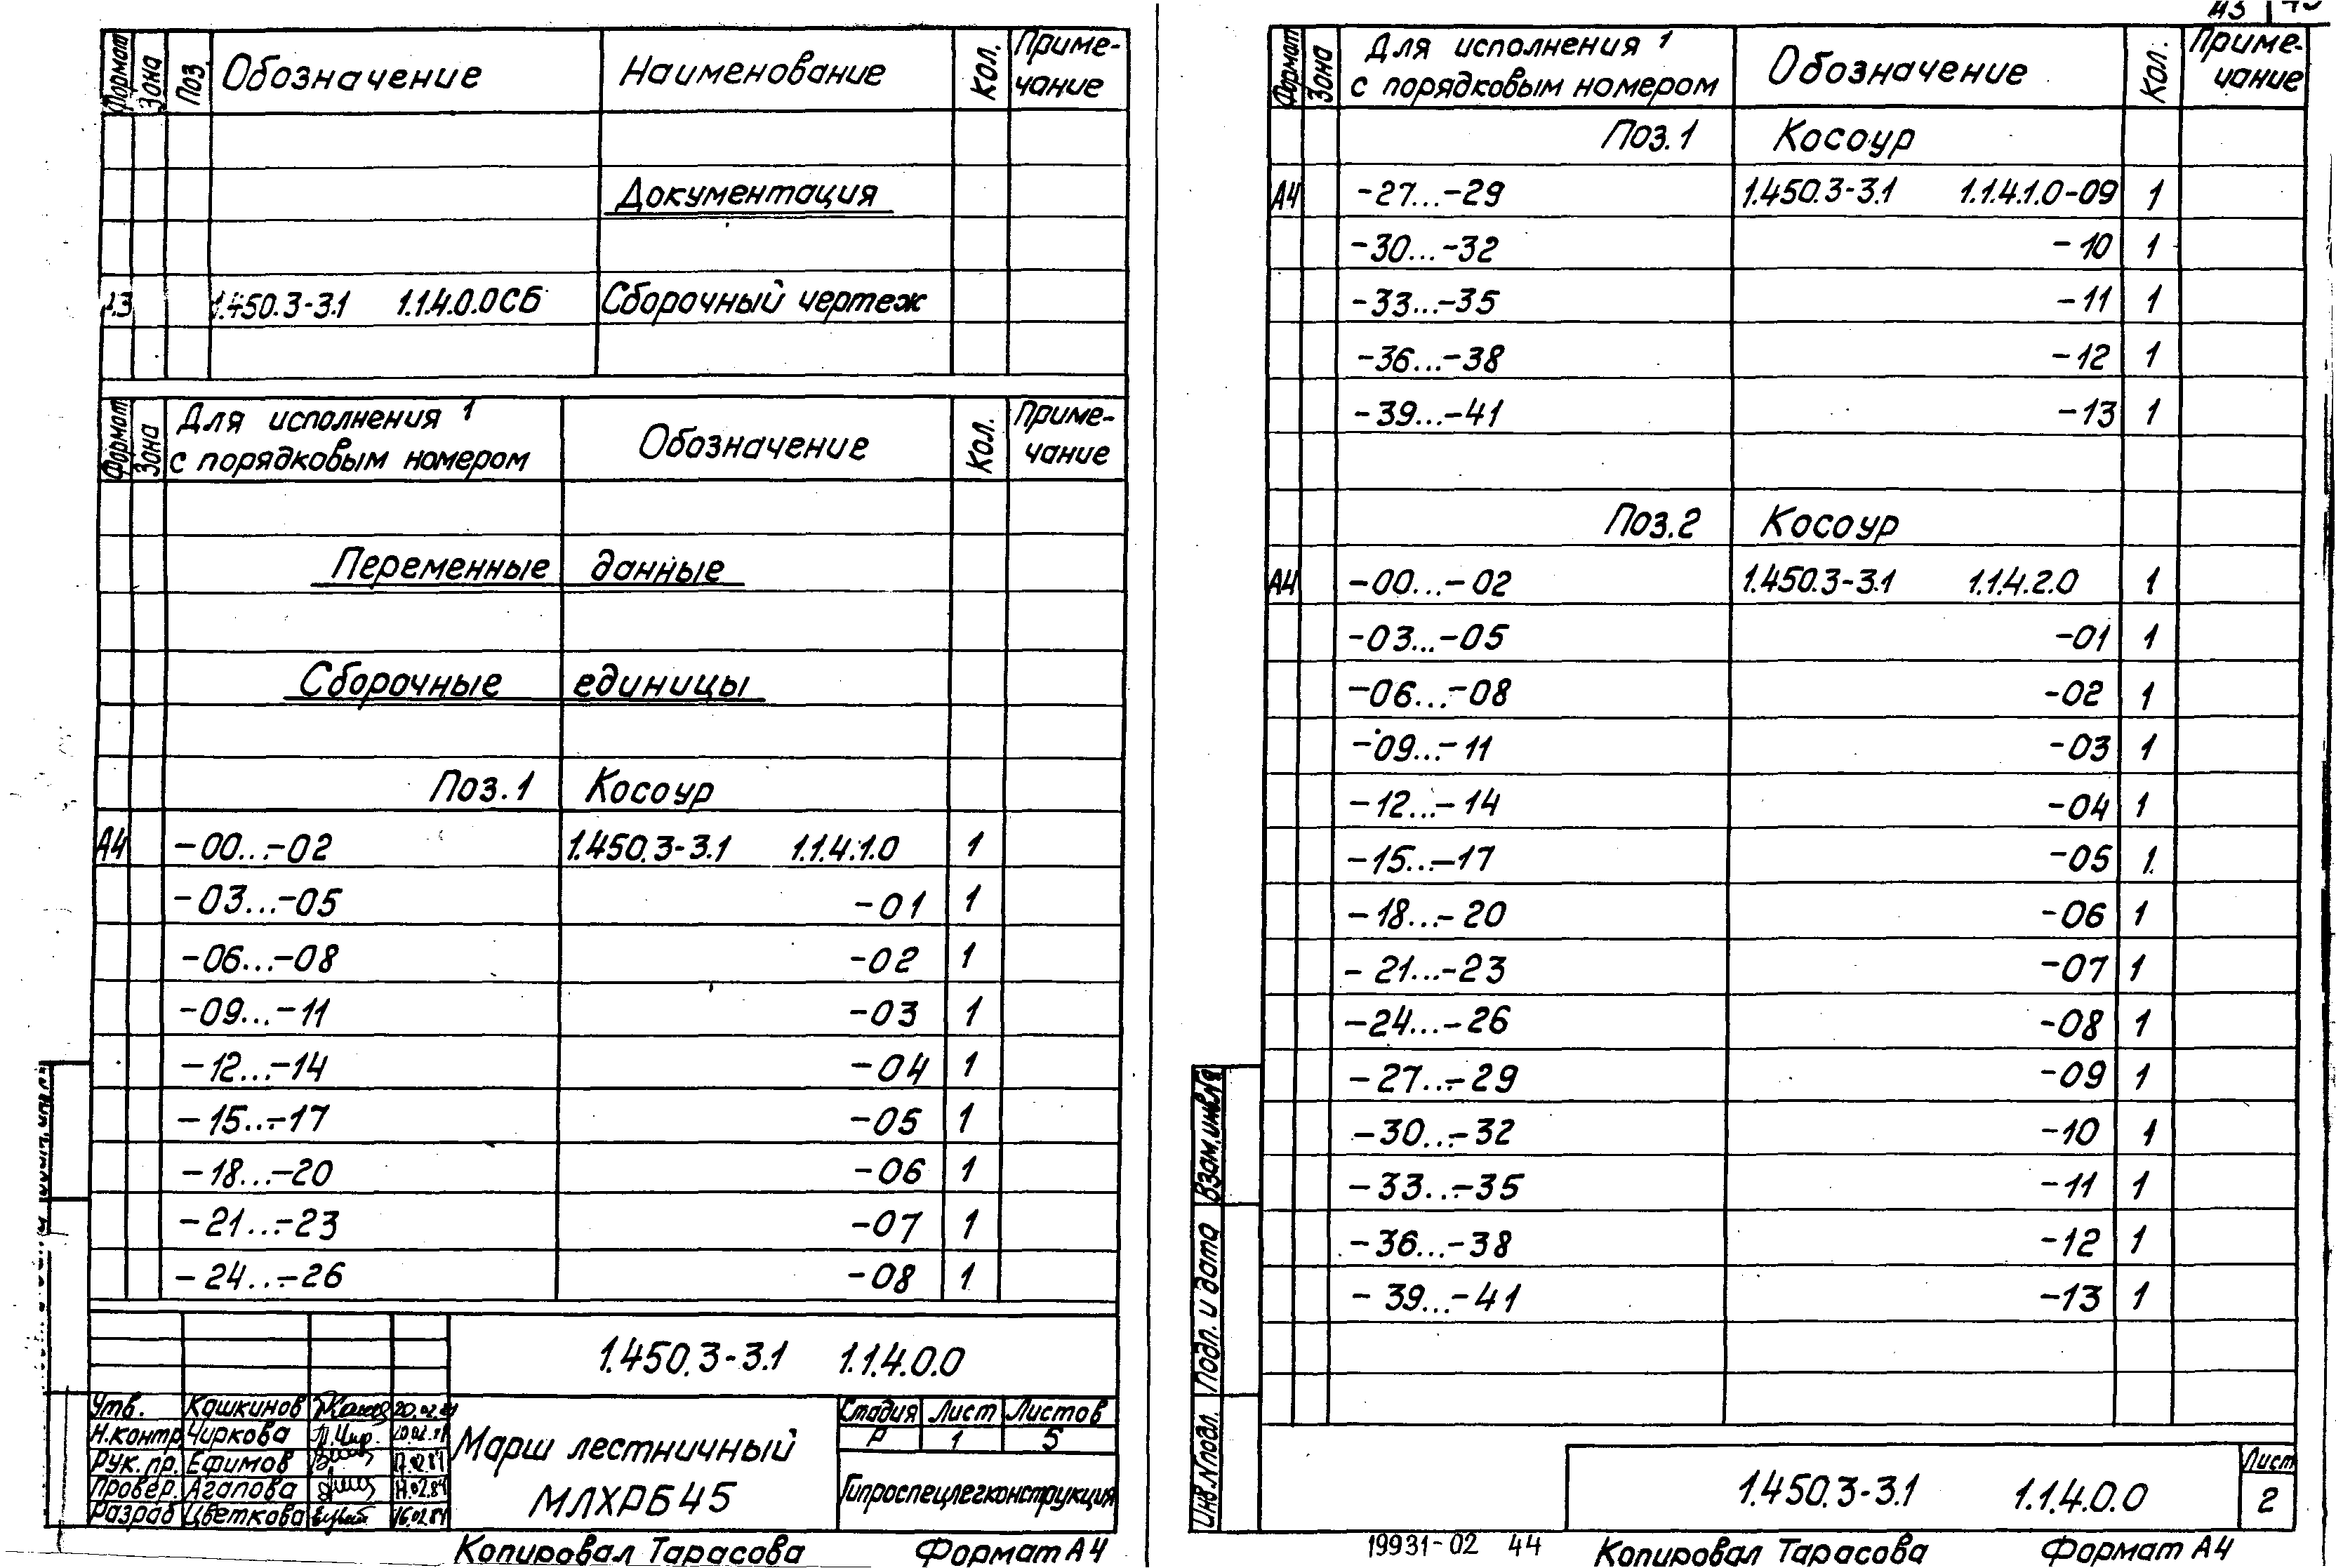 Формат Зона Поз. Обозначение Наименование Кол. Приме-
чание
Документация
1.450.3-3.1 1.1.4.0.0СБ Сборочный чертеж
Формат Зона Для исполнения 1 Обозначение Кол. Приме-
с порядковым номером чание
Переменные данные
Сборочные единицы
Поз.1 Косоур
А4 -00...-02 1.450.3-3.1 1.1.4.1.0 1
-03...-05 -01 1
-06...-08 -02 1
-09...-11 -03 1
-12...-14 -04 1
-15...-17 -05 1
-18...-20 -06 1
-21...-23 -07 1
-24...-26 -08 1
1.450.3-3.1 1.1.4.0.0
Утв. Кашкинов 20.02.84
Н.контр Чиркова
Рук.пр. Ефимов
Провер. Агапова 17.02.84
Разраб Цветкова 16.02.84
Марш лестничный
МЛХРБ45
Стадия Лист Листов
Р 1 5
Гипроспецлегконструкция
Копировал Тарасова Формат А4
Формат Зона Для исполнения 1 Обозначение Кол. Приме-
с порядковым номером чание
Поз.1 Косоур
А4 -27...-29 1.450.3-3.1 1.1.4.1.0-09 1
-30...-32 -10 1
-33...-35 -11 1
-36...-38 -12 1
-39...-41 -13 1
Поз.2 Косоур
А4 -00...-02 1.450.3-3.1 1.1.4.2.0 1
-03...-05 -01 1
-06...-08 -02 1
-09...-11 -03 1
-12...-14 -04 1
-15...-17 -05 1
-18...-20 -06 1
-21...-23 -07 1
-24...-26 -08 1
-27...-29 -09 1
-30...-32 -10 1
-33...-35 -11 1
-36...-38 -12 1
-39...-41 -13 1
Инв.№подл. Подп. и дата Взам.инв.№
1.450.3-3.1 1.1.4.0.0 Лист
2
19931-02 44 Копировал Тарасова Формат А4